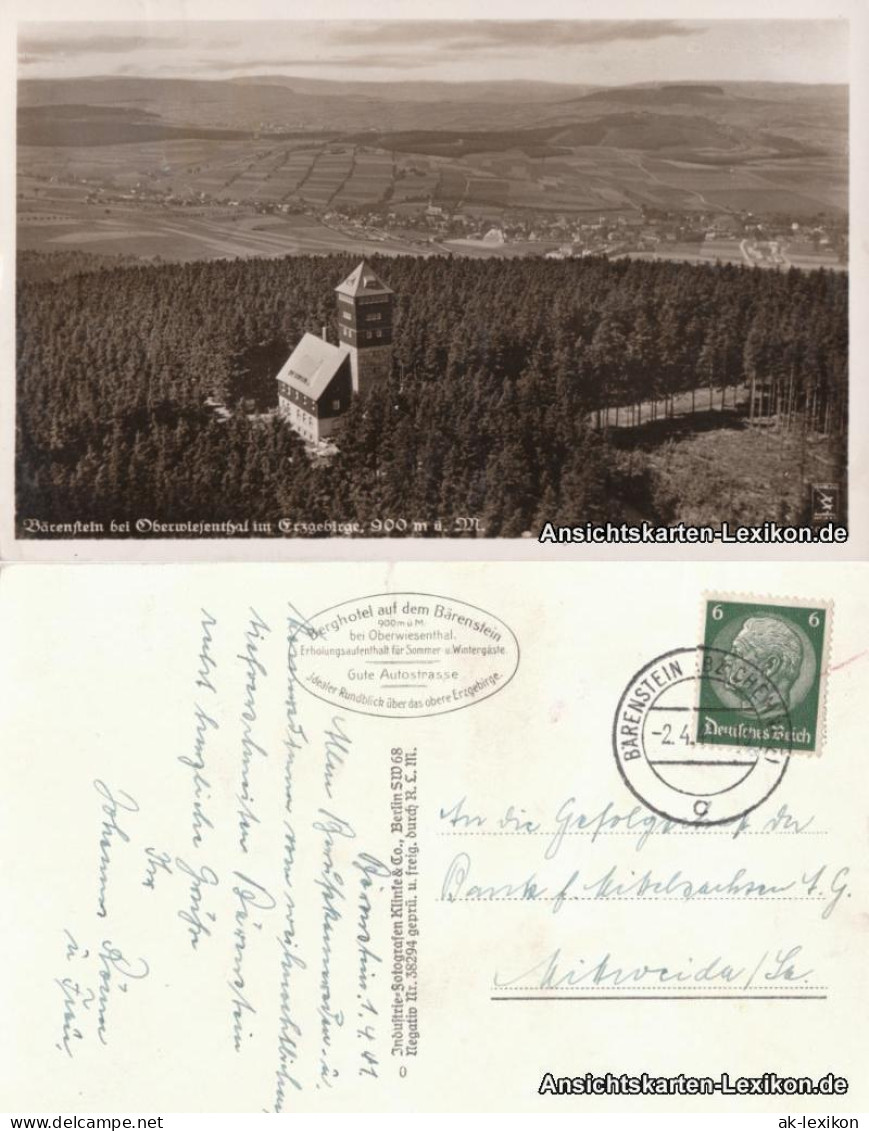 Bärenstein bei Oberwiesenthal im Erzgebirge, 900 m ü. M.
Ansichtskarten-Lexikon.de
Berghotel auf dem Bärenstein
900 m ü. M.
bei Oberwiesenthal.
Erholungsaufenthalt für Sommer u. Wintergäste.
Gute Autostrasse
Idealer Rundblick über das obere Erzgebirge.
6 6
Deutsches Reich
BÄRENSTEIN (BZ CHEMNITZ)
-2.4.
g
Bärenstein, 1.4.41.
Allen Berufskameraden u.
Kameradinnen vom weihnachtlichen
tiefverschneiten Bärenstein
recht herzliche Grüße
Ihr
Johannes
u. Frau.
Industrie-Fotografen Klinke & Co., Berlin SW 68
Negativ Nr. 38294 geprü. u. freig. durch R. L. M.
An die Gefolgschaft der
Bank f. Mittelsachsen A.G.
Mittweida/Sa.
Ansichtskarten-Lexikon.de
ak-lexikon